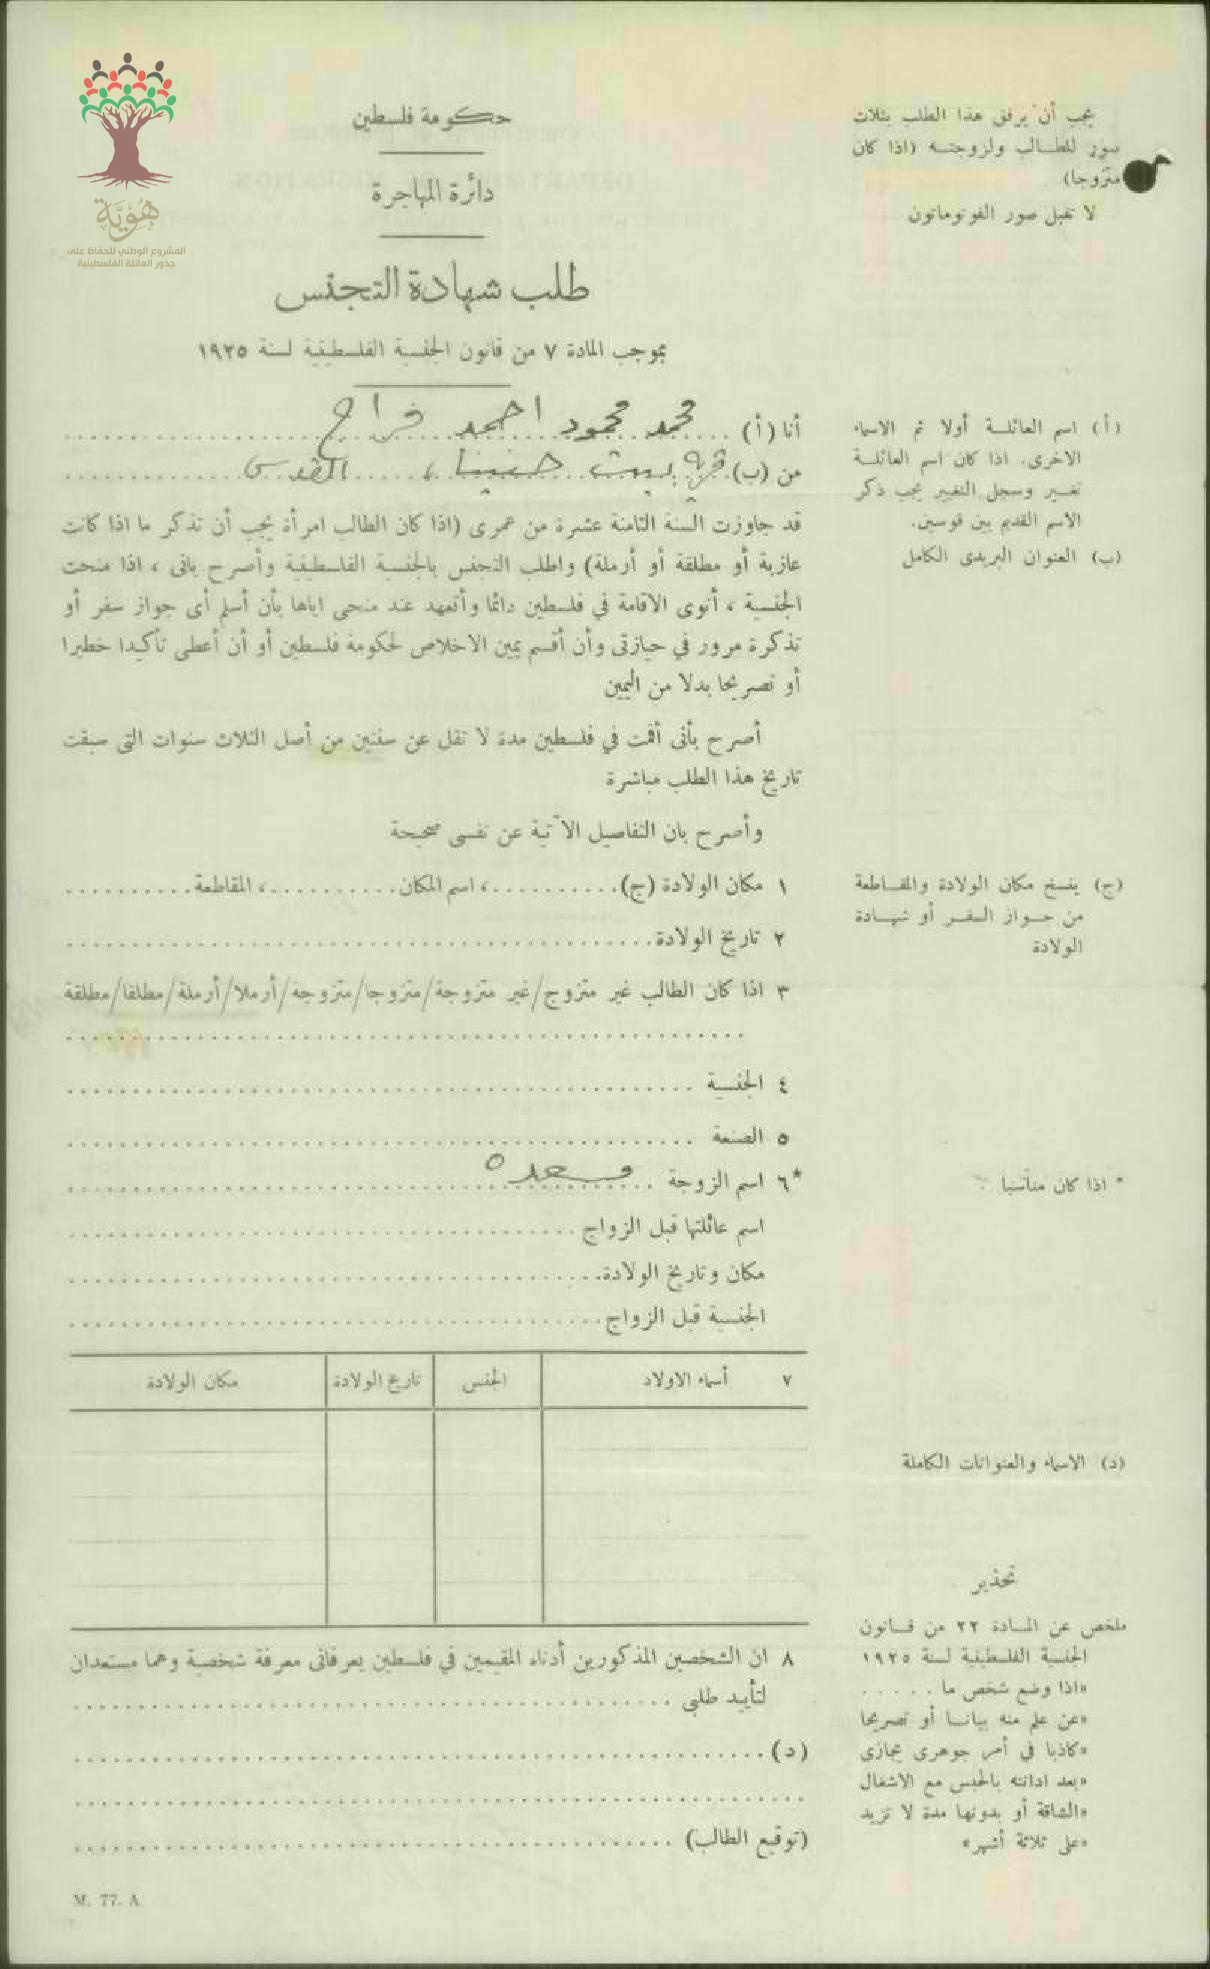 هُوِيَّة
المشروع الوطني للحفاظ على
جذور العائلة الفلسطينية
حكومة فلسطين
دائرة المهاجرة
طلب شهادة التجنس
بموجب المادة ٧ من قانون الجنسية الفلسطينية لسنة ١٩٢٥
يجب أن يرفق هذا الطلب بثلاث
صور للطالب ولزوجته (اذا كان
متزوجا)
لا تقبل صور الفوتوماتون
أنا (أ) محمد محمود احمد فراح
من (ب) قرية بيت حنينا، القدس
(أ) اسم العائلة أولا ثم الاسماء
الاخرى. اذا كان اسم العائلة
تغير وسجل التغيير يجب ذكر
الاسم القديم بين قوسين.
(ب) العنوان البريدى الكامل
قد جاوزت السنة الثامنة عشرة من عمرى (اذا كان الطالب امرأة يجب أن تذكر ما اذا كانت
عازبة أو مطلقة أو أرملة) واطلب التجنس بالجنسية الفلسطينية وأصرح بانى ، اذا منحت
الجنسية ، أنوى الاقامة في فلسطين دائما وأتعهد عند منحى اياها بأن أسلم أى جواز سفر أو
تذكرة مرور في حيازتى وأن أقسم يمين الاخلاص لحكومة فلسطين أو أن أعطى تأكيدا خطيرا
أو تصريحا بدلا من اليمين
أصرح بأنى أقمت في فلسطين مدة لا تقل عن سنتين من أصل الثلاث سنوات التى سبقت
تاريخ هذا الطلب مباشرة
وأصرح بان التفاصيل الآتية عن نفسى صحيحة
١ مكان الولادة (ج)..........، اسم المكان..........، المقاطعة..........
(ج) ينسخ مكان الولادة والمقاطعة
من جواز السفر أو شهادة
الولادة
٢ تاريخ الولادة
٣ اذا كان الطالب غير متزوج/غير متزوجة/متزوجا/متزوجة/أرملا/أرملة/مطلقا/مطلقة
٤ الجنسية
٥ الصنعة
*٦ اسم الزوجة مسعده
* اذا كان مناسبا
اسم عائلتها قبل الزواج
مكان وتاريخ الولادة
الجنسية قبل الزواج
٧ أسماء الاولاد الجنس تاريخ الولادة مكان الولادة
(د) الاسماء والعنوانات الكاملة
٨ ان الشخصين المذكورين أدناه المقيمين في فلسطين يعرفانى معرفة شخصية وهما مستعدان
لتأييد طلبى
(د)
(توقيع الطالب)
تحذير
ملخص عن المادة ٢٢ من قانون
الجنسية الفلسطينية لسنة ١٩٢٥
«اذا وضع شخص ما .....
«عن علم منه بيانا أو تصريحا
«كاذبا في أمر جوهرى يجازى
«بعد ادانته بالحبس مع الاشغال
«الشاقة أو بدونها مدة لا تزيد
«على ثلاثة أشهر»
M. 77. A